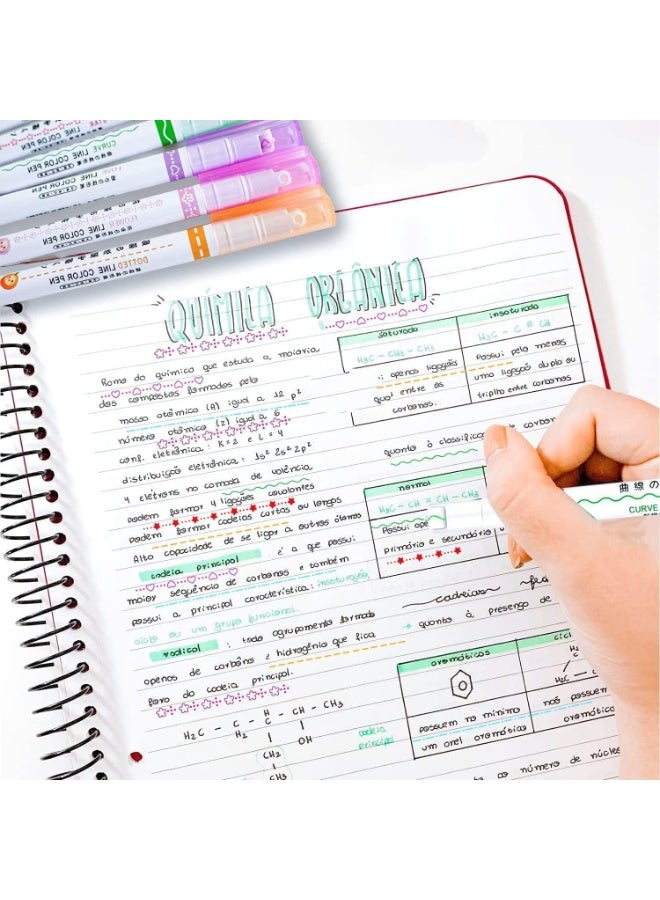 LINE COLOR PEN
CURVE LINE COLOR PEN
LINE COLOR PEN
FLOWER LINE COLOR PEN
DOTTED LINE COLOR PEN
QUÍMICA ORGÂNICA
Ramo da química que estuda a maioria
dos compostos formados pelo
massa atômica (A) igual a 12
número atômico (Z) igual a 6
conf. eletrônica: K=2 e L=4
distribuição eletrônica: 1s² 2s² 2p²
4 elétrons na camada de valência
podem formar 4 ligações covalentes
podem formar cadeias curtas ou longas
Alta capacidade de se ligar a outros átomos
cadeia principal : é a que possui
maior sequência de carbonos e também
possui a principal característica: insaturação,
ciclo ou um grupo funcional.
radical : todo agrupamento formado
apenas de carbono e hidrogênio que fica
fora da cadeia principal.
H₃C - C - C - CH - CH₃
H₂
H
CH₂ OH
CH₃
cadeia
principal
saturada
insaturada
H₃C - CH₂ - CH₃
H₃C - C ≡ CH
apenas ligações
entre os
carbonos.
Possui pelo menos
uma ligação dupla ou
tripla entre carbonos
quanto à
carbon
normal
H₃C - CH = CH - CH₃
Possui ape
primário e secundário
cadeias
quanto à presença de
aromáticos
cicl
possuem no mínimo
um anel aromático
não possuem
aromático
H₂C
o número de núcleo
曲線の
CURVE